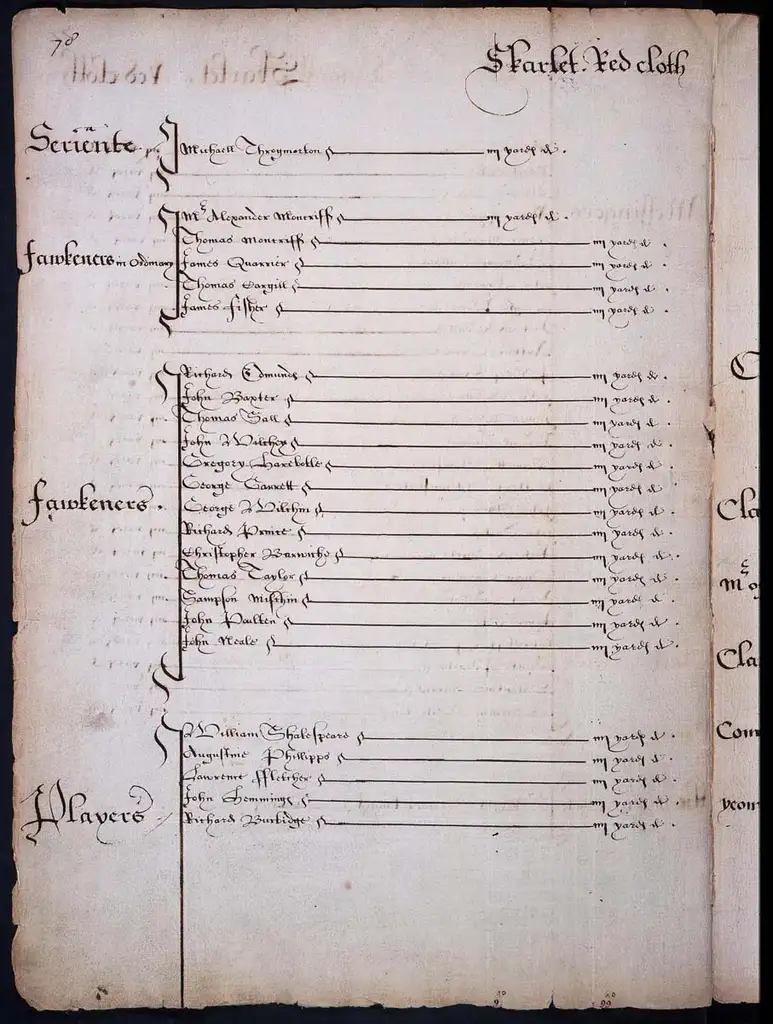 78
Skarlet. Red cloth
Michaell Throgmorton iiij yardes di .
Mr Alexander Montriff iiij yardes di .
Thomas Montriff iiij yardes di .
fawkeners in Ordinary James Quarrier iiij yardes di .
Thomas Cargill iiij yardes di .
James fissher iiij yardes di .
Richard Edmunds iiij yardes di .
John Baxter iiij yardes di .
Thomas Sall iiij yardes di .
John Wilthey iiij yardes di .
Gregory Harebotle iiij yardes di .
George Garrett iiij yardes di .
fawkeners . George Wilchin iiij yardes di .
Richard Prince iiij yardes di .
Christopher Barwicke iiij yardes di .
Thomas Taylor iiij yardes di .
Sampson iiij yardes di .
John iiij yardes di .
John Neale iiij yardes di .
William Shakespeare iiij yardes di .
Augustine Phillipps iiij yardes di .
Lawrence ffletcher iiij yardes di .
John Hemminges iiij yardes di .
Players Richard Burbidge iiij yardes di .